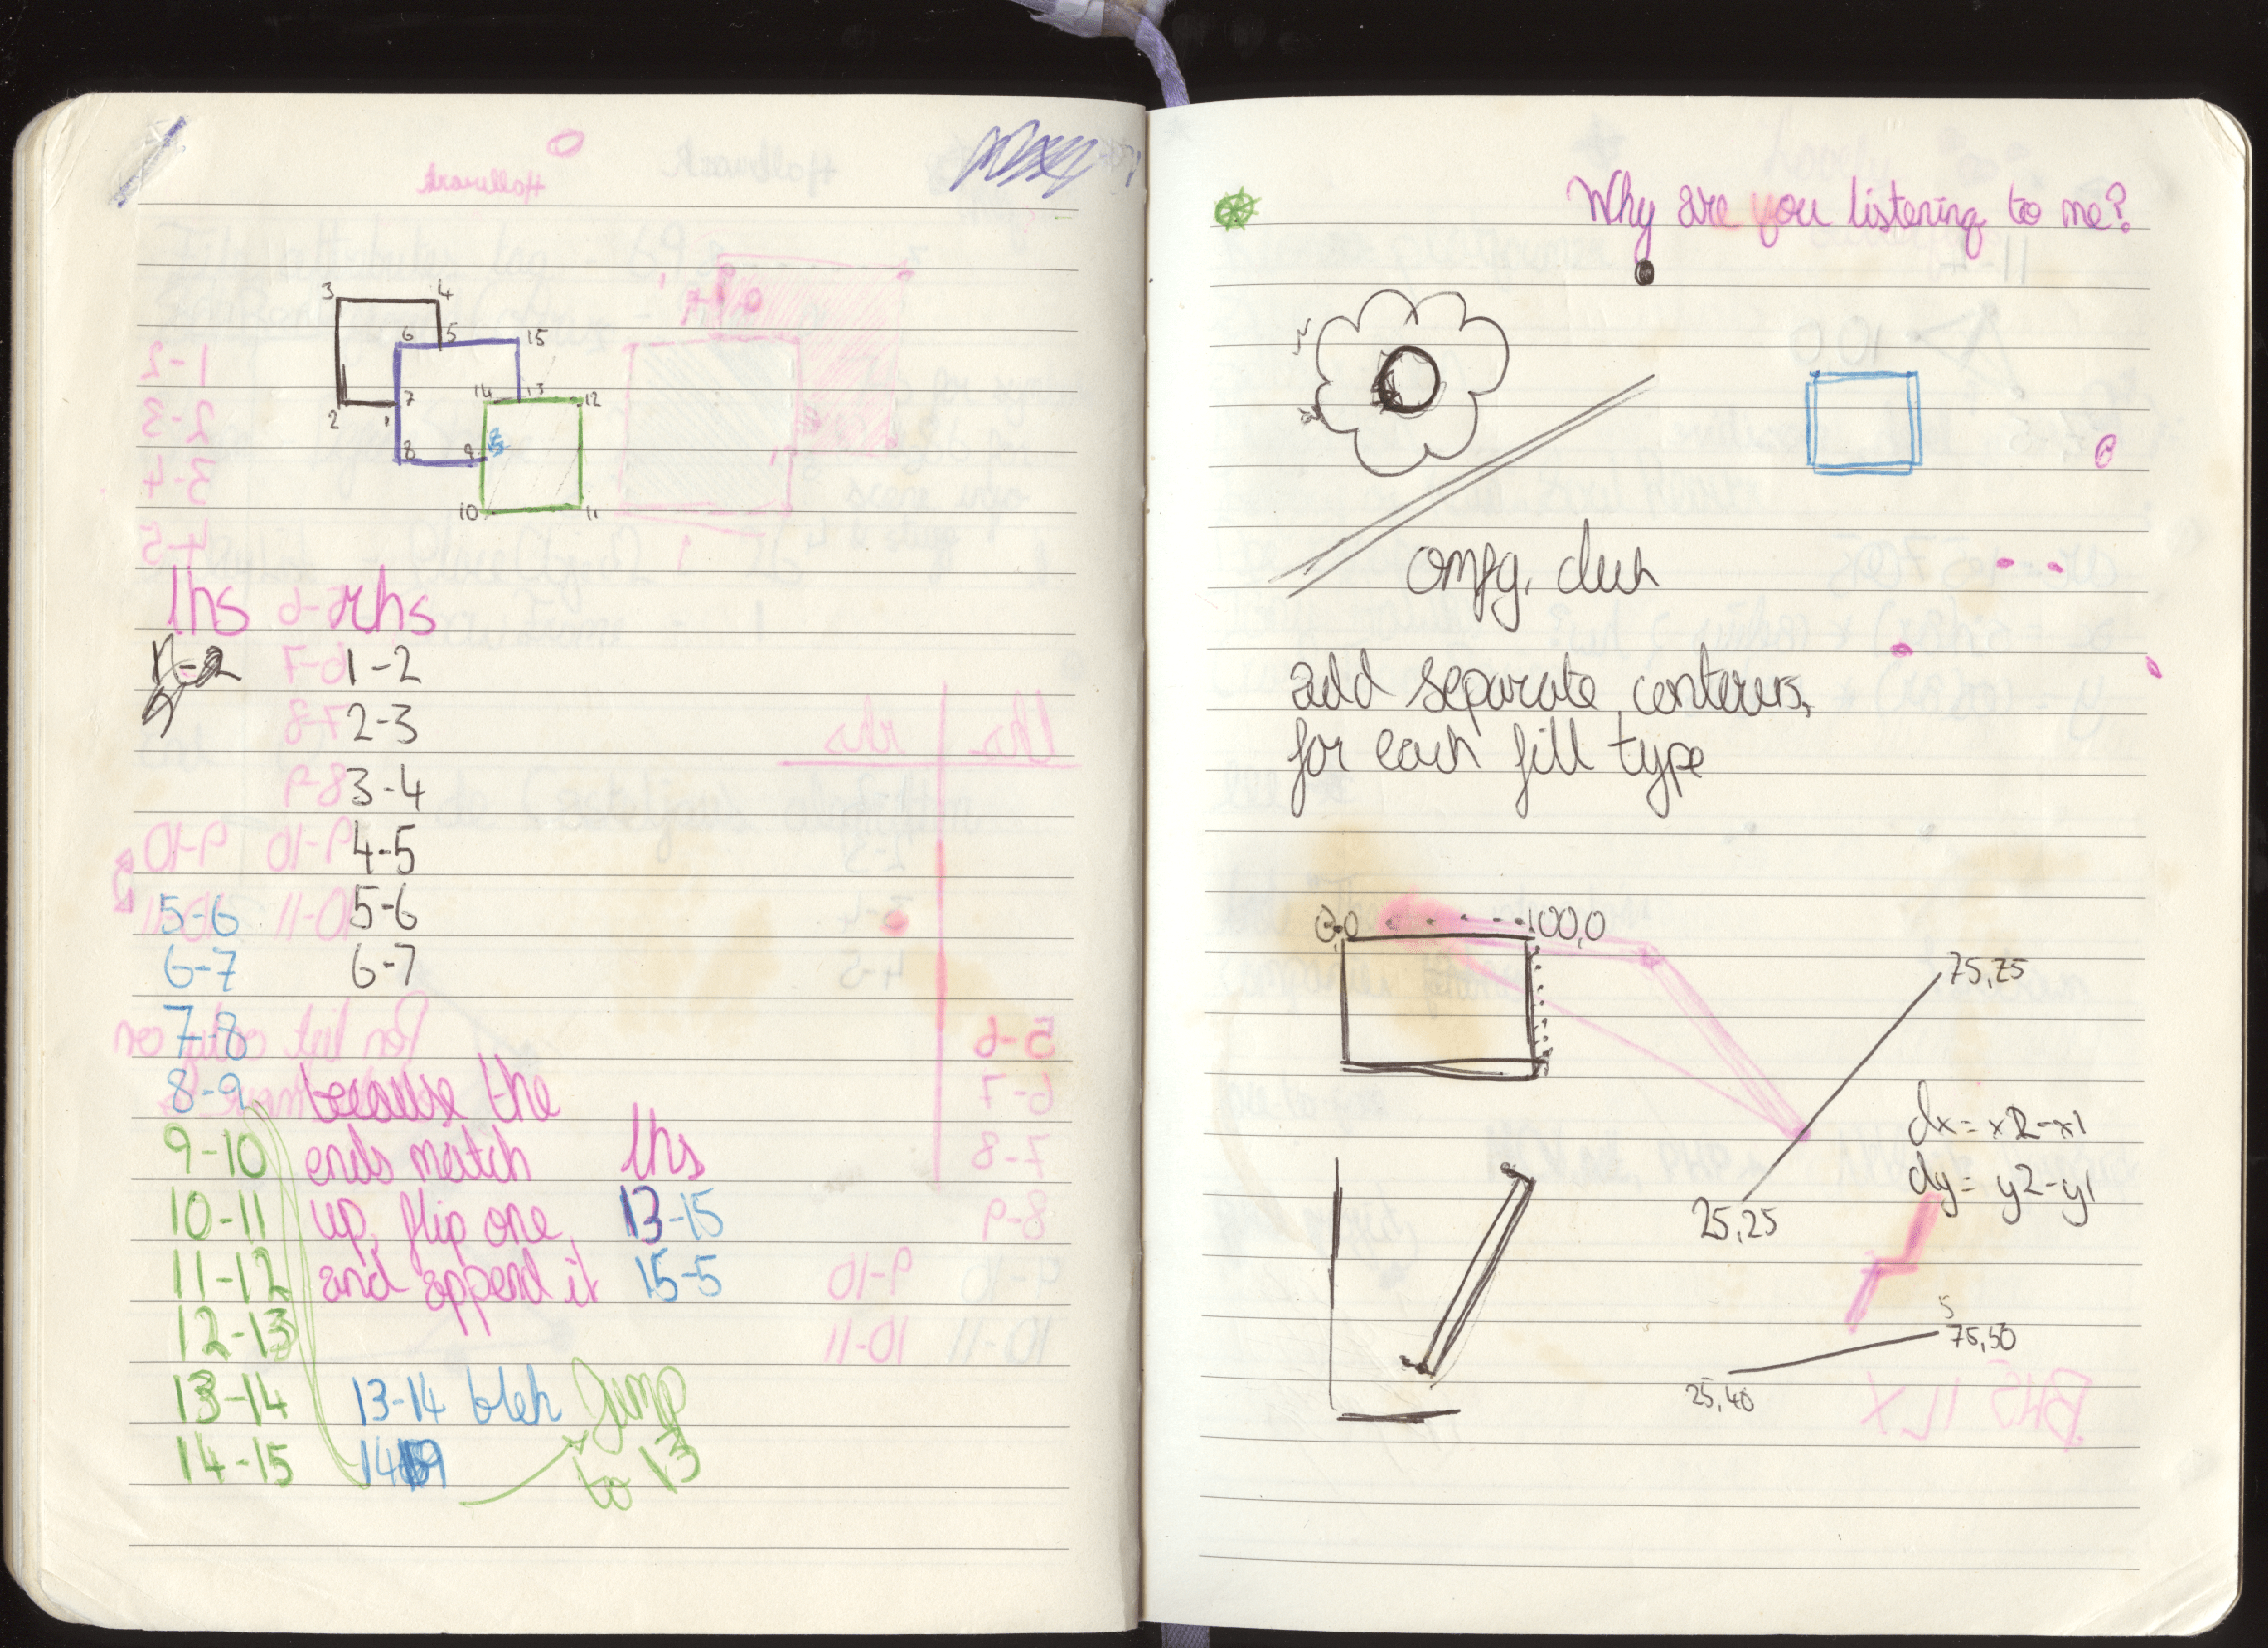 3 4
6 5 15
14 13 12
2 1 7
8 9
10 11
lhs rhs
1-2
2-3
3-4
4-5
5-6 5-6
6-7 6-7
7-8
8-9 because the
9-10 ends match lhs
10-11 up, flip one, 13-15
11-12 and append it 15-5
12-13
13-14 13-14 bleh Jump
14-15 to 13
Why are you listening to me?
omfg, duh
add separate contours,
for each fill type
0,0 100,0
75,75
dx = x2-x1
dy = y2-y1
25,25
5
75,50
25,40